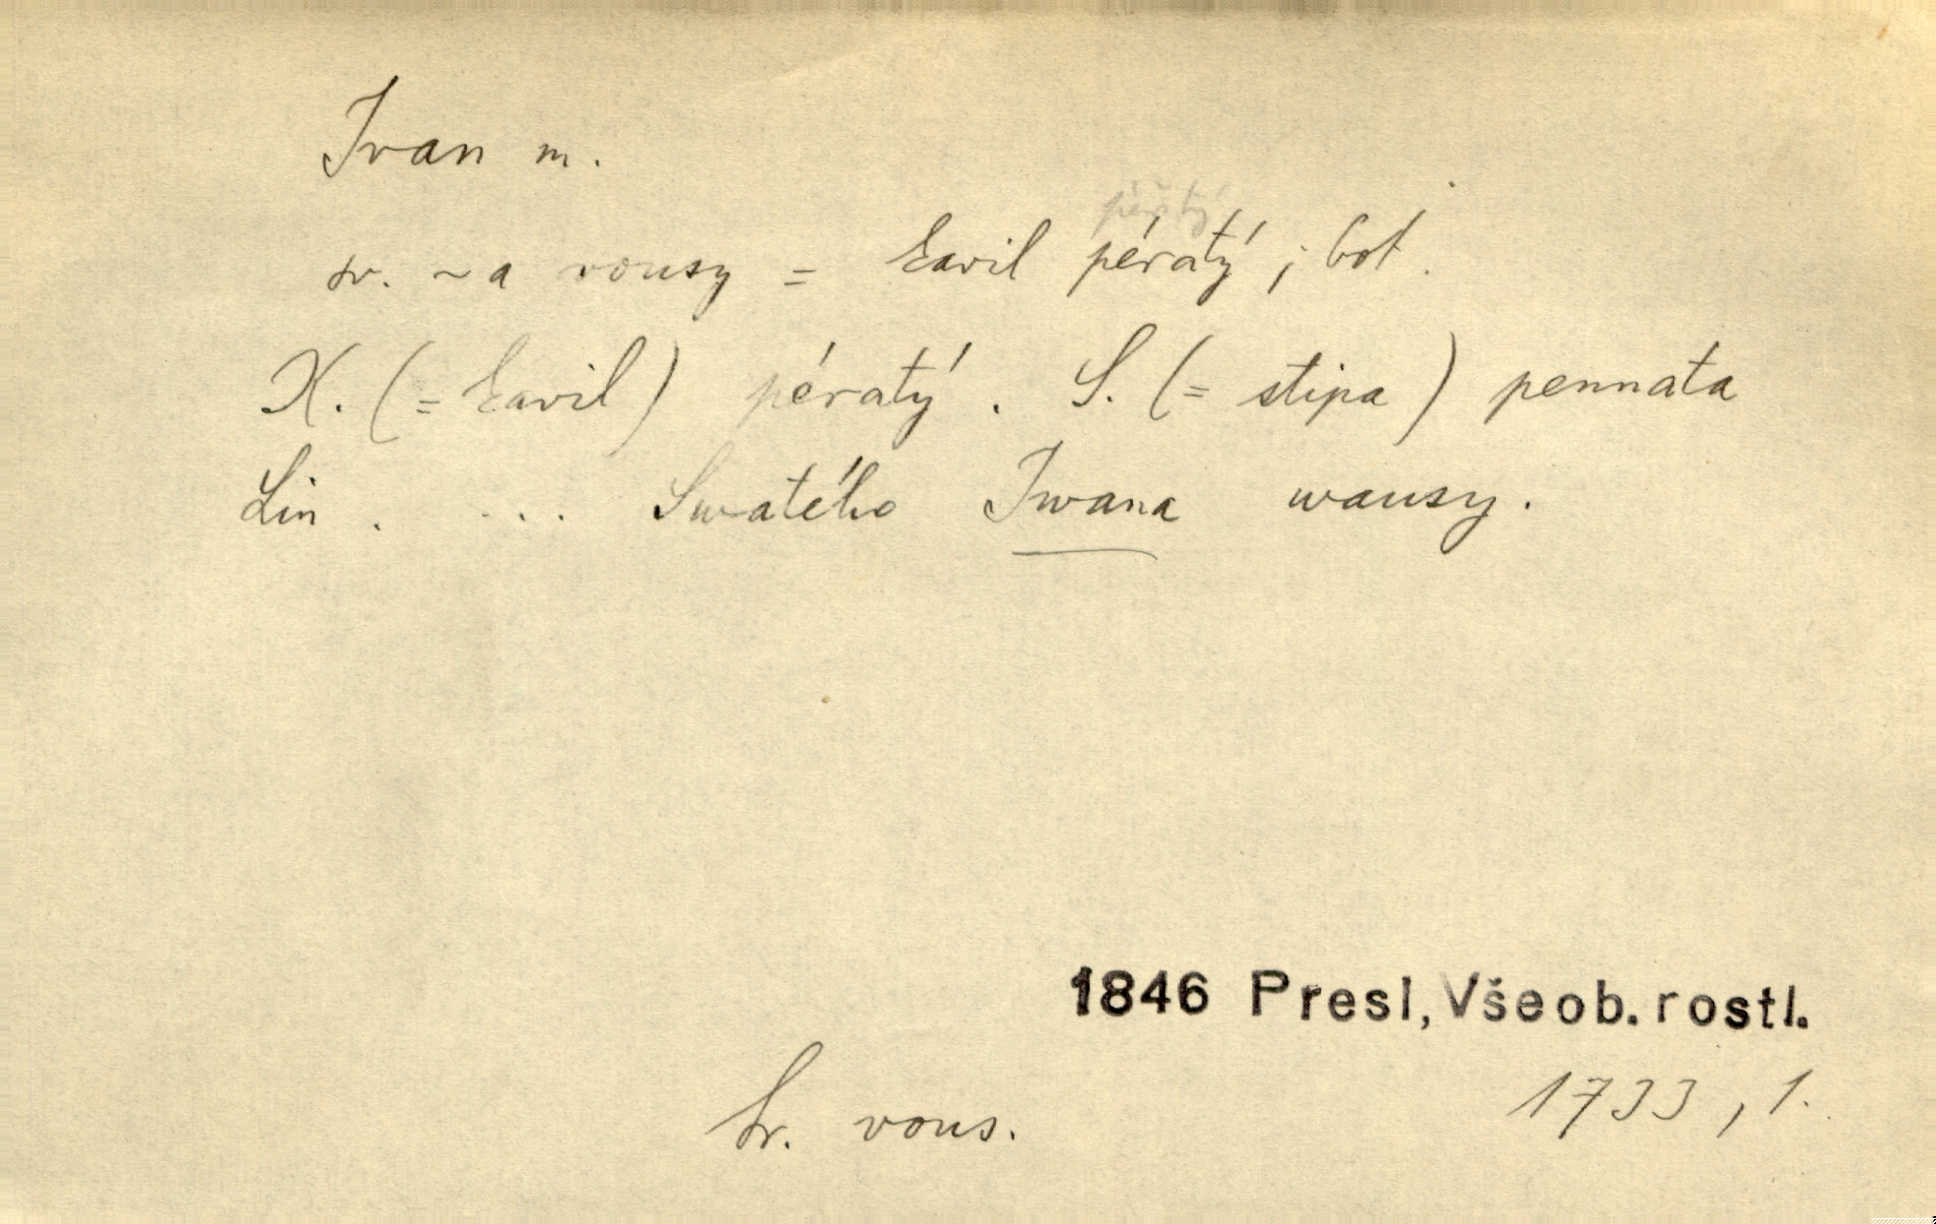 Ivan m.
pérítý
sv. ~a vousy = kavil pératý; bot.
K. (= kavil) pératý. S. (= stipa) pennata
Lin. ... Swatého Iwana wausy.
1846 Presl, Všeob. rostl.
1733, 1.
Sr. vous.